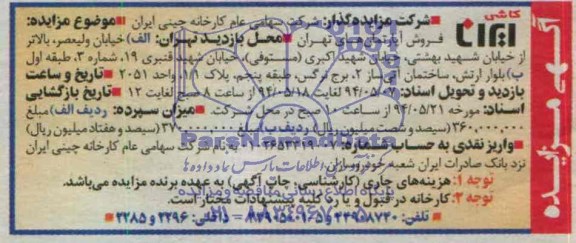 آگهی مزایده
کاشی ایرانا
■شرکت مزایده‌گذار: شرکت سهامی عام کارخانه چینی ایران ■موضوع مزایده:
فروش آپارتمانهای تهران ■محل بازدید تهران: الف) خیابان ولیعصر، بالاتر
از خیابان شهید بهشتی، خیابان شهید اکبری (مستوفی)، خیابان شهید قنبری ۱۹، شماره ۳، طبقه اول
ب) بلوار ارتش، ساختمان ۲، برج نرگس، طبقه پنجم، پلاک واحد ۲۰۵۱ ■تاریخ و ساعت
بازدید و تحویل اسناد: ۹۴/۰۵/۰۷ لغایت ۹۴/۰۵/۱۸ از ساعت ۸ صبح لغایت ۱۲ ■تاریخ بازگشایی
اسناد: مورخه ۹۴/۰۵/۲۱ از ساعت ۱۰ صبح در محل شرکت. ■میزان سپرده: ردیف الف) مبلغ
۳۶۰,۰۰۰,۰۰۰ (سیصد و شصت میلیون ریال) ردیف ب) مبلغ ۳۷۰,۰۰۰,۰۰۰ (سیصد و هفتاد میلیون ریال)
■واریز نقدی به حساب شماره: بنام شرکت سهامی عام کارخانه چینی ایران
نزد بانک صادرات ایران شعبه خودروسازان
توجه ۱: هزینه‌های جاری (کارشناسی، چاپ آگهی) به عهده برنده مزایده می‌باشد.
توجه ۲: کارخانه در قبول و یا رد کلیه پیشنهادات مختار است.
■ تلفن: ۴۴۹۵۸۷۴۰ داخلی: ۲۲۹۶ و ۲۲۸۵
ParsNamadData
پایگاه اطلاع رسانی مناقصه و مزایده